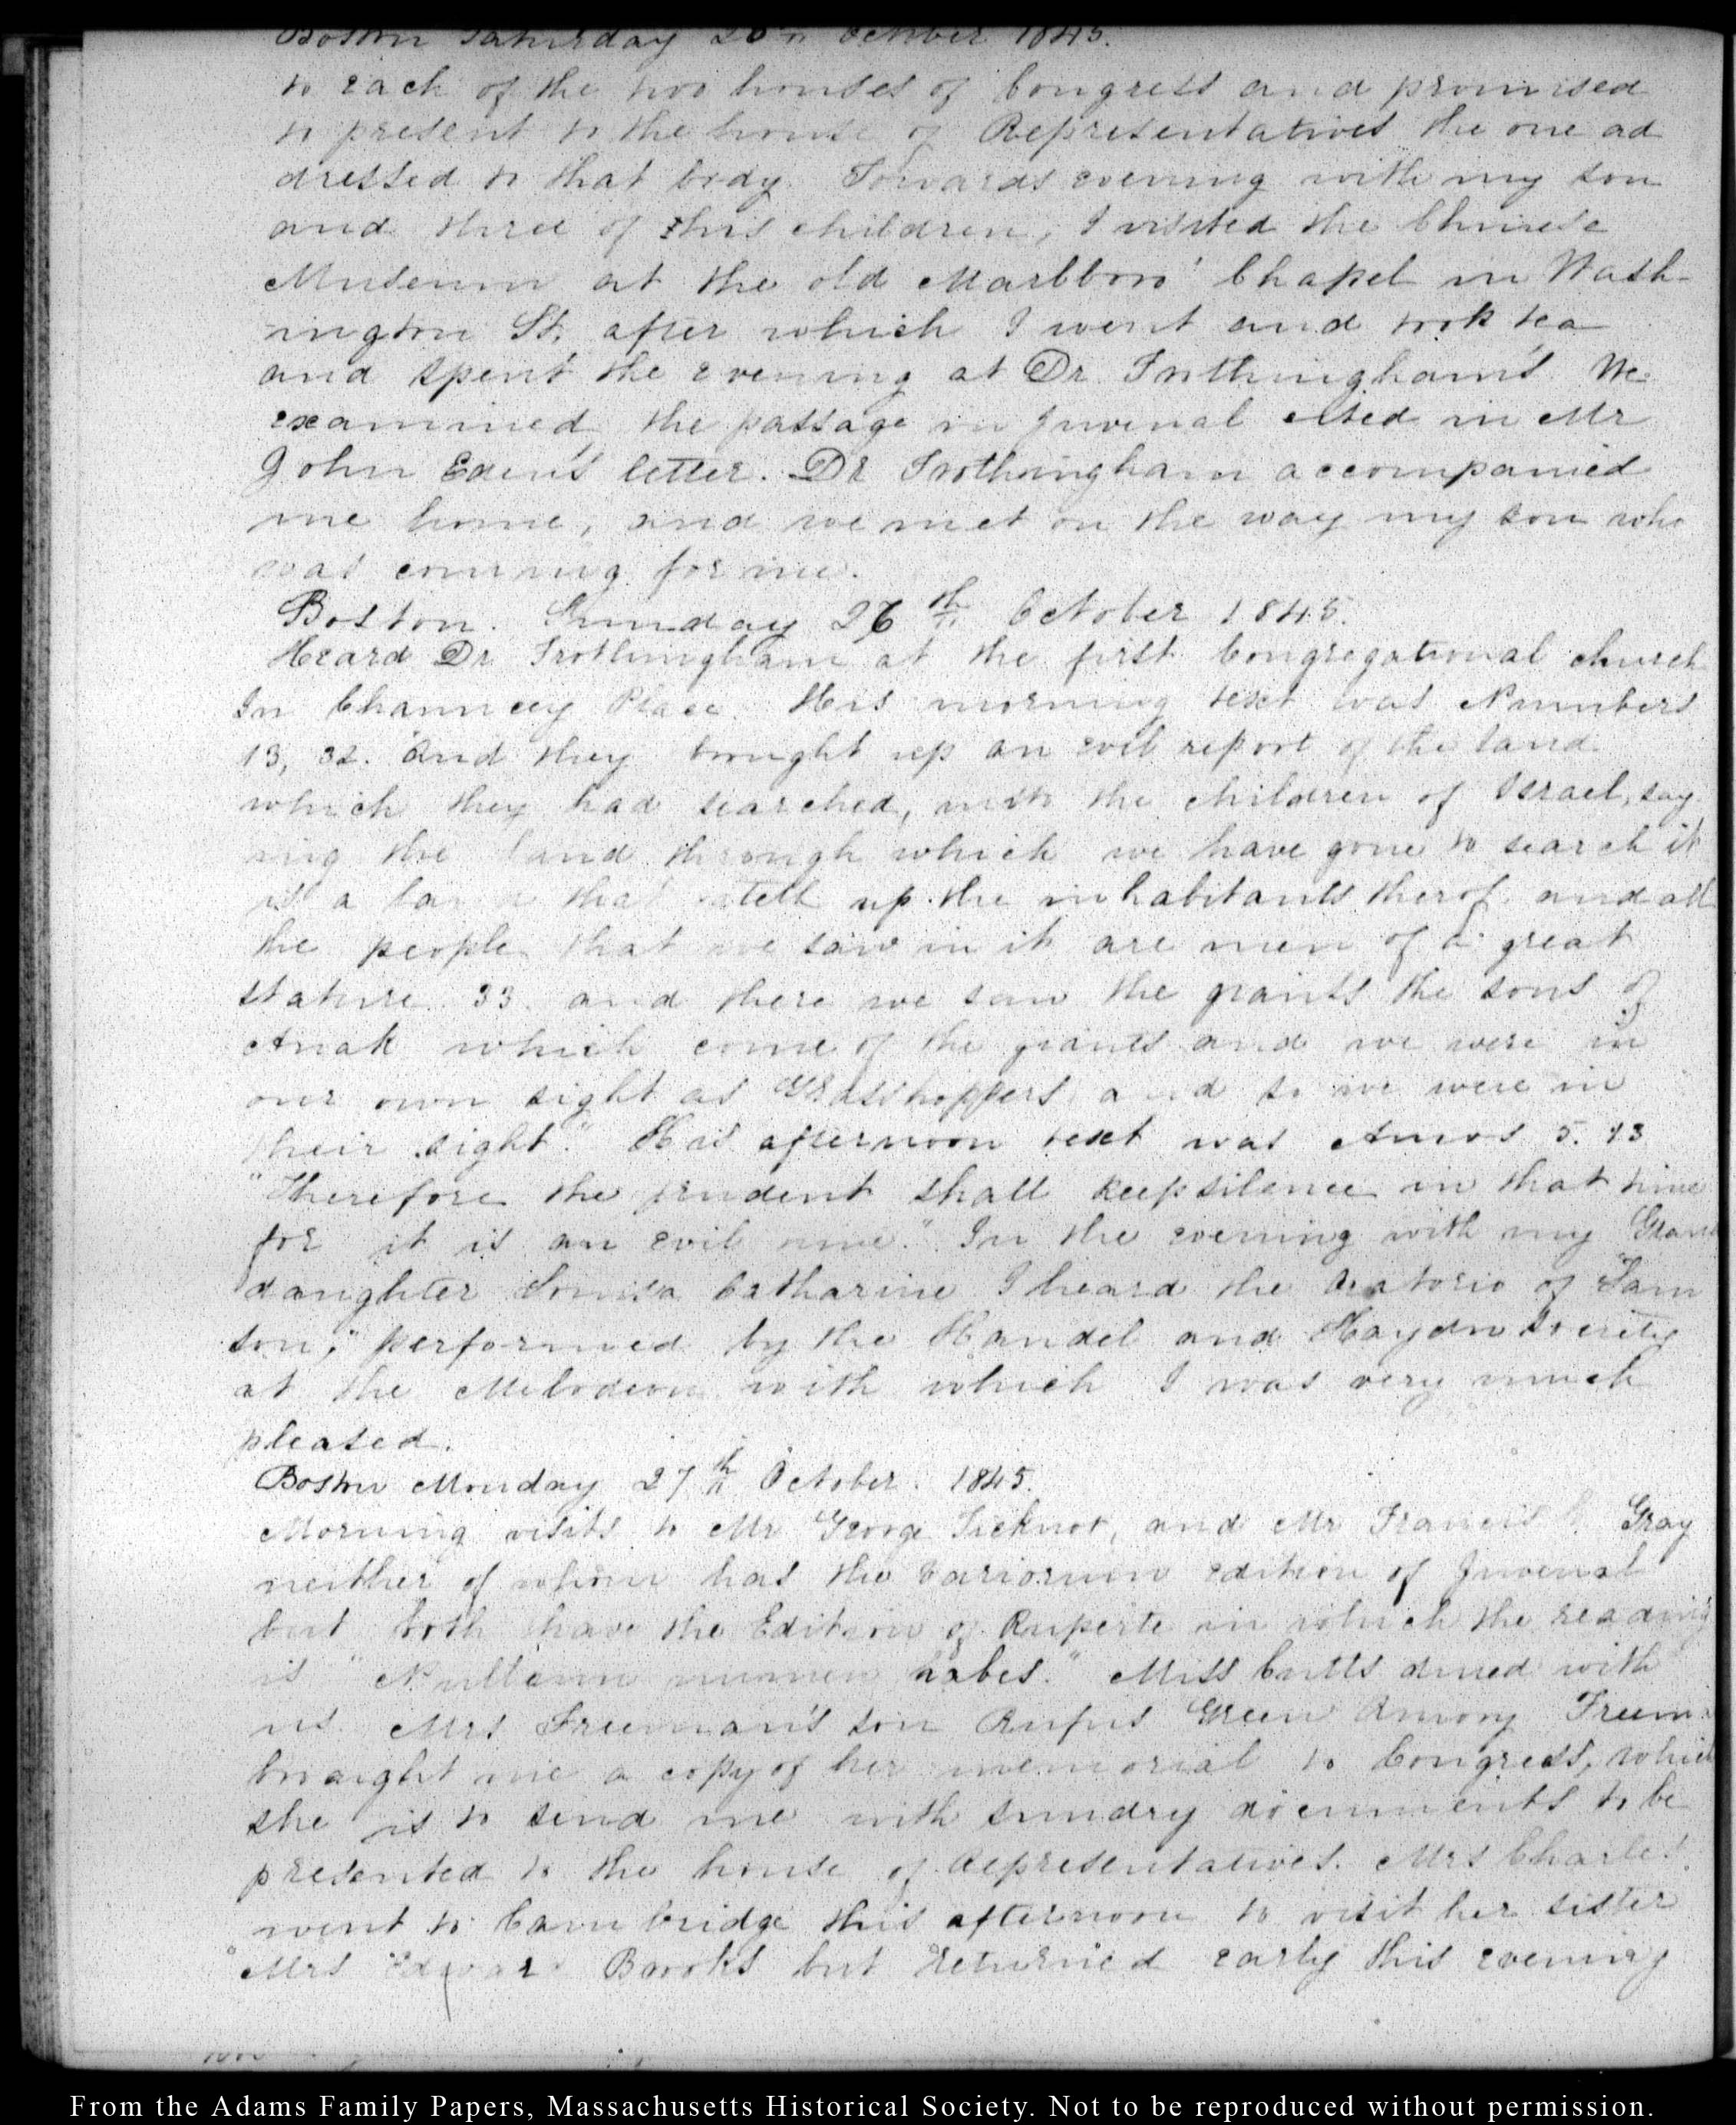 Boston Saturday 25th October 1845.
to each of the two houses of Congress and promised
to present to the house of Representatives the one ad
dressed to that body. Towards evening with my son
and three of his children, I visited the Chinese
Museum at the old Marlboro' Chapel in Wash-
ington St. after which I went and took tea
and spent the evening at Dr Frothingham's. We
examined the passage in Juvenal cited in Mr
John letter. Dr Frothingham accompanied
me home, and we met on the way my son who
was coming for me.
Boston. Sunday 26th October 1845.
Heard Dr Frothingham at the first Congregational church
In Chauncey Place. His morning text was Numbers
13, 32. And they brought up an evil report of the land
which they had searched, unto the children of Israel, say
ing the land through which we have gone to search it
is a land that eateth up the inhabitants therof and all
the people that we saw in it are men of a great
stature 33 and there we saw the giants the sons of
Anak which come of the giants and we were in
our own sight as Grasshoppers and so we were in
their sight." His afternoon text was Amos 5. 13
"Therefore the prudent shall keep silence in that time
for it is an evil time." In the evening with my Grand
daughter Louisa Catharine I heard the Oratorio of "Sam
son," performed by the Handel and Haydn Society
at the Melodeon with which I was very much
pleased.
Boston Monday 27th October. 1845.
Morning visits to Mr George Ticknor, and Mr Francis Gray
neither of whom has the variorum edition of Juvenal
but both have the Edition of Ruperte in which the reading
is "Nullum numen habes." Miss Cutts dined with
us. Mrs Freeman's son Rufus Green Amory Freem
brought me a copy of her memorial to Congress, which
she is to send me with sundry documents to be
presented to the house of Representatives. Mrs Charles
went to Cambridge this afternoon to visit her sister
Mrs Edward Brooks but returned early this evening
From the Adams Family Papers, Massachusetts Historical Society. Not to be reproduced without permission.